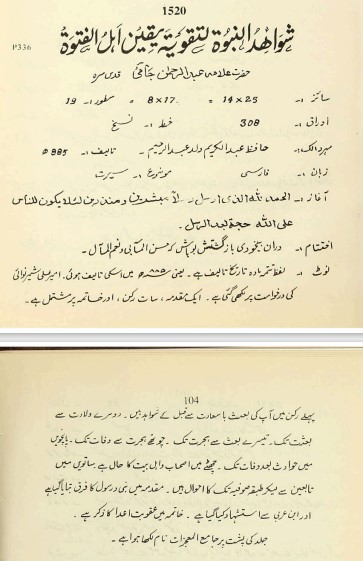 1520
شواہد النبوۃ لتقویۃ یقین اہل الفتوۃ
P336
حضرت علامہ عبدالرحمٰن جامی قدس سرہ
سائز :۔ 14×25 = 8×17 سطور :۔ 19
اوراق :۔ 308 خط :۔ نسخ
مہر و مالک :۔ حافظ عبدالکریم ولد عبدالرحیم ۔ تالیف :۔ 885ھ
زبان :۔ فارسی موضوع :۔ سیرت
آغاز :۔ الحمد للہ الذی ارسل رسلاً مبشرین و منذرین لئلا یکون للناس
علی اللہ حجۃ بعد الرسل ۔
اختتام :۔ دران بیخودی باز گشتش بدانش کہ حسن المآب و نعم المآل ۔
نوٹ :۔ لفظ تتمہ مادہ تاریخ تالیف ہے ۔ یعنی ۸۸۵ھ میں اسکی تالیف ہوئی ۔ امیر علی شیر نوائی
کی درخواست پر لکھی گئی ہے ۔ ایک مقدمہ ، سات رکن ، اور خاتمہ پر مشتمل ہے ۔
104
پہلے رکن میں آپ کی بعثت با سعادت سے قبل کے شواہد ہیں ۔ دوسرے ولادت سے
بعثت تک ۔ تیسرے بعثت سے ہجرت تک ۔ چوتھے ہجرت سے وفات تک ۔ پانچویں
میں حوادث بعد وفات تک ۔ چھٹے میں اصحاب و اہل بیت کا حال ہے ساتویں میں
تابعین سے لیکر طبقہ صوفیہ تک کا احوال ہیں ۔ مقدمہ میں نبی و رسول کا فرق بتایا گیا ہے
اور ابن عربی سے استشہاد کیا گیا ہے ۔ خاتمہ میں عقوبت اعدا کا ذکر ہے ۔
جلد کی پشت پر جامع المعجزات نام لکھا ہوا ہے ۔